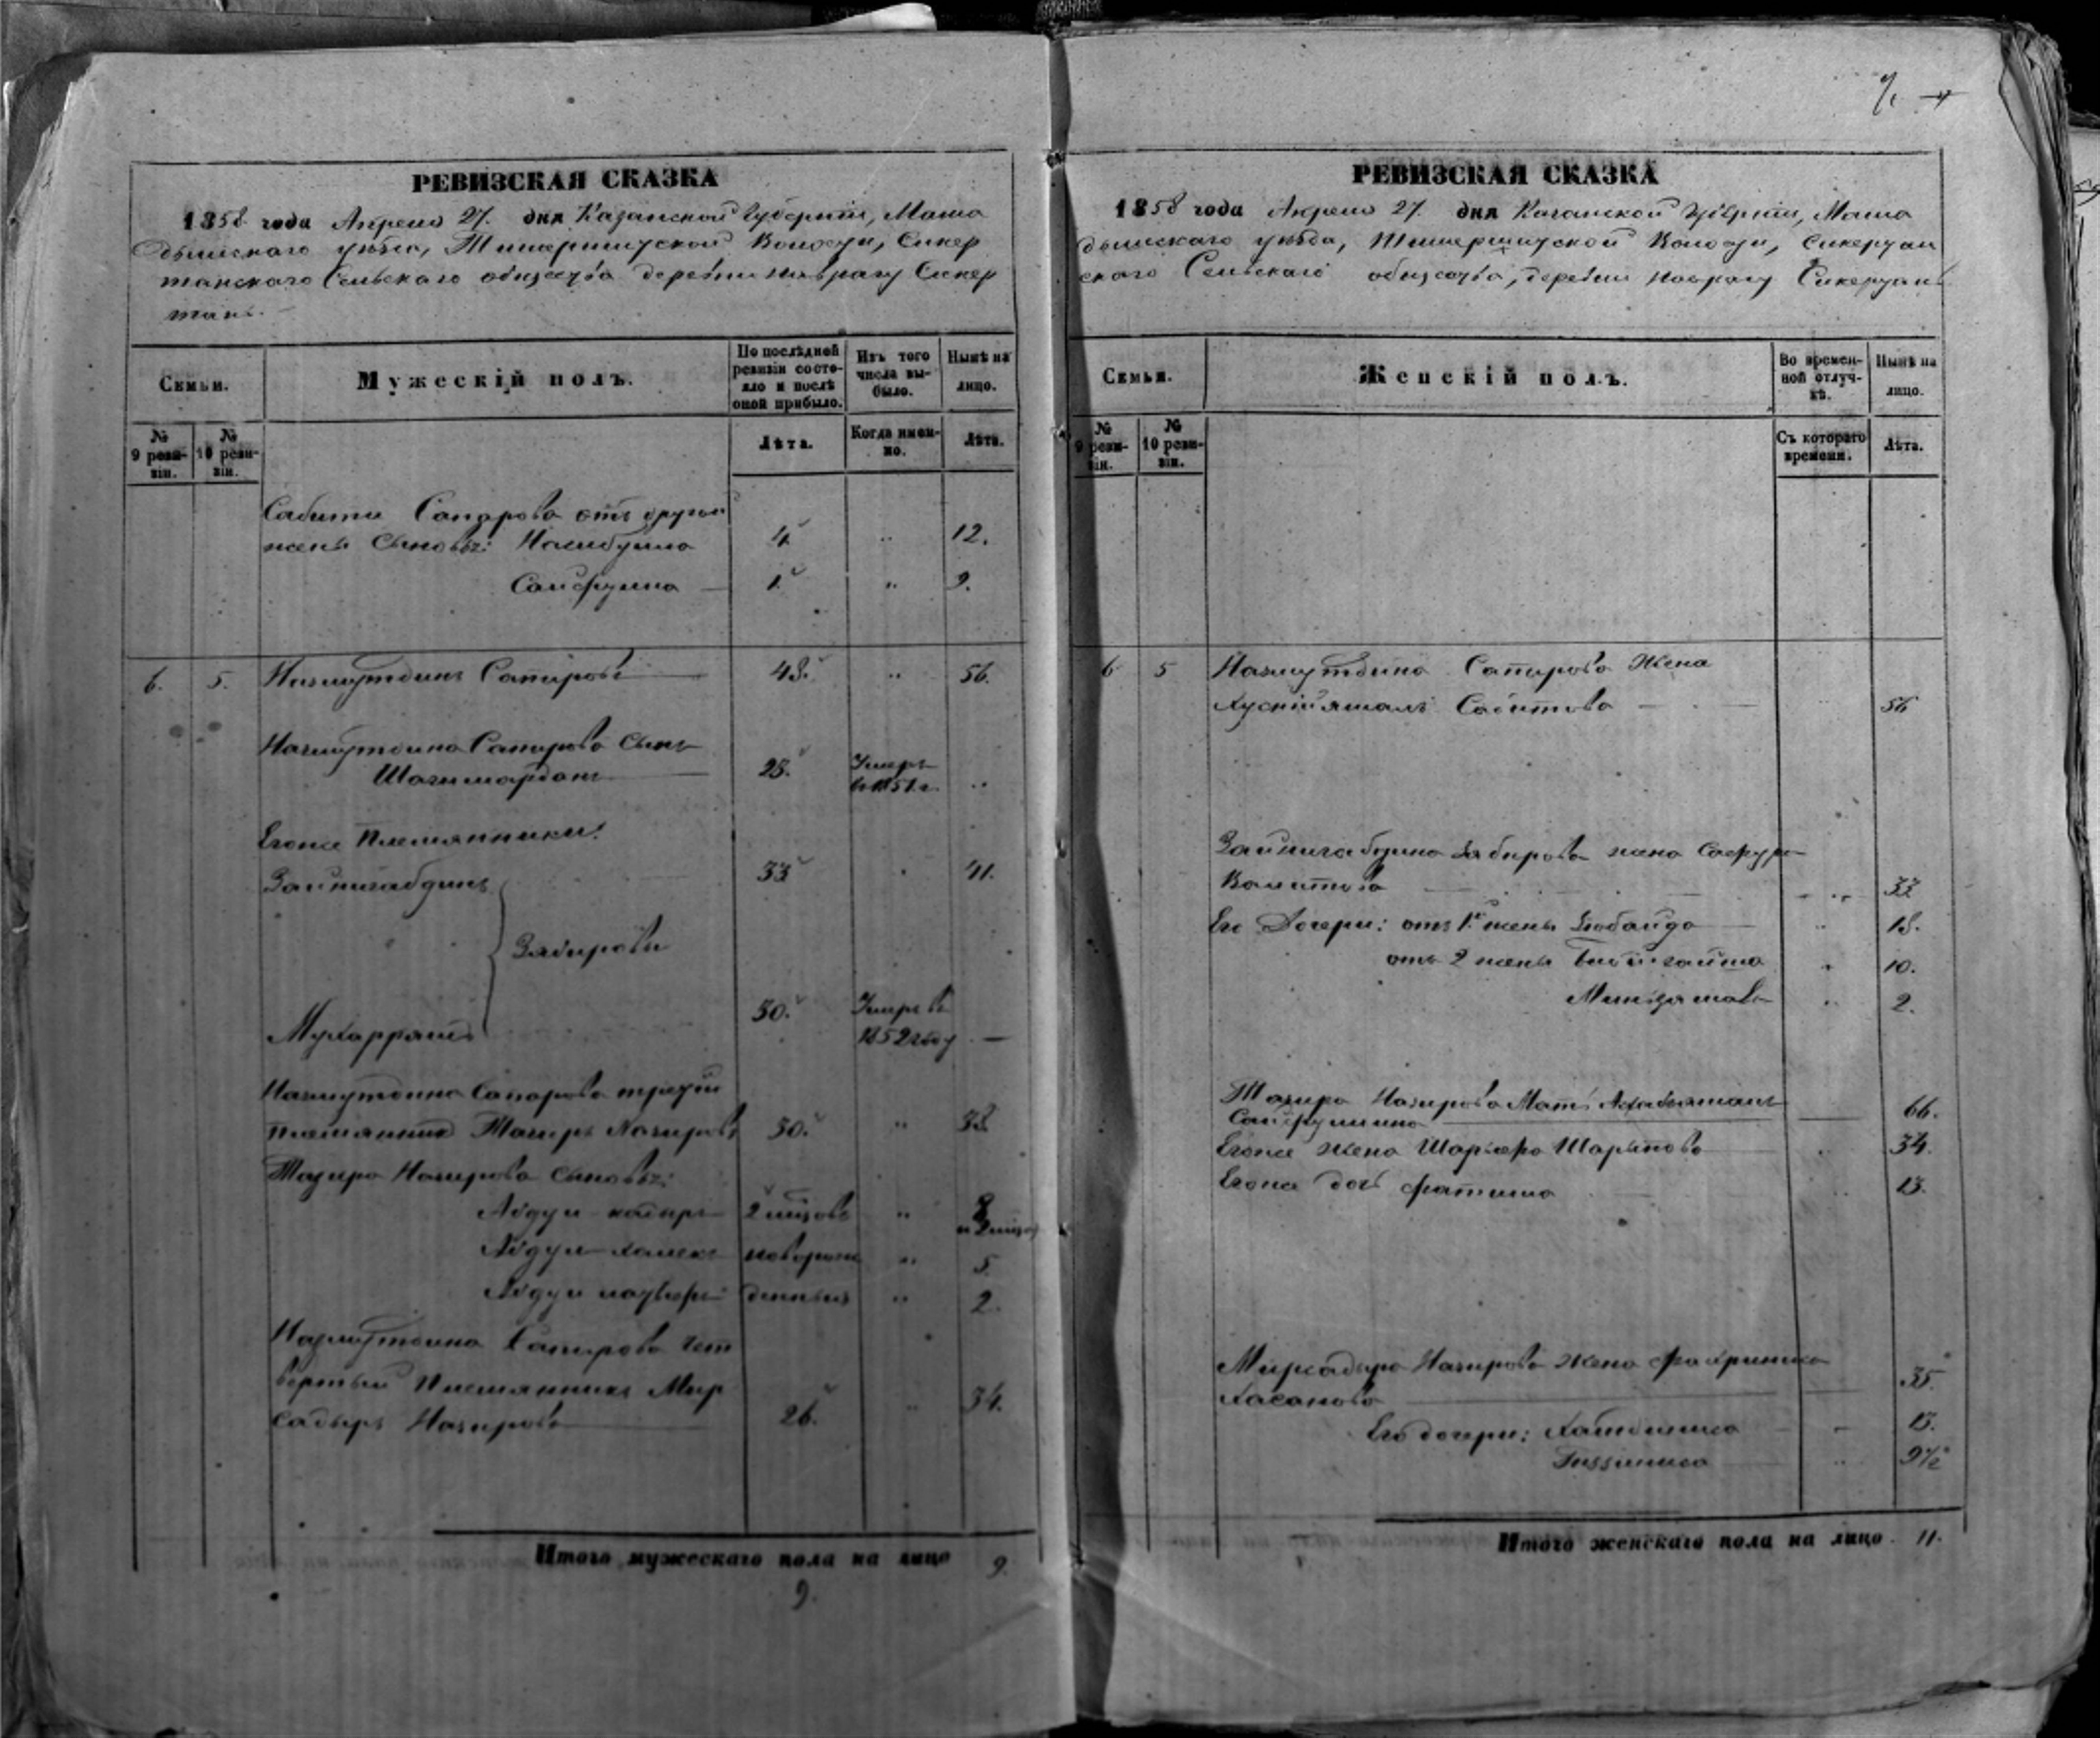 РЕВИЗСКАЯ СКАЗКА
1858 года Апреля 27. дня Казанской Губернiи, Мама
дышскаго уѣзда, Волости, Сикер
танскаго Сельскаго общества деревни Сикер
танъ.
Семьи.
Мужескiй полъ.
По послѣдней ревизiи состо-
яло и послѣ
оной прибыло.
Изъ того
числа вы-
было.
Нынѣ на
лицо.
№
9 реви-
зiи.
№
10 реви-
зiи.
Лѣта.
Когда имен-
но.
Лѣта.
Сабита Сапарова отъ другой
жены сыновья: 4. " 12.
Сайфулла 1. " 9.
6. 5. Назмутдинъ Сапаровъ 48. " 56.
Назмутдина Сапарова сынъ
Шагимарданъ 25. Умеръ
в 1851 г. "
Егоже племянники:
Зайнигабдинъ 33 " 41.
Зябировы
30. Умеръ въ
1852 году —
Назмутдина Сапарова третiй
племянникъ Тагиръ Назировъ 30. " 38.
Тагира Назирова сыновья:
Абдул-кадыръ 2 мѣсцовъ " 8
и 2 мѣсц
Абдул новорож " 5.
Абдул денныя " 2.
Назмутдина Сапарова чет
вертый племянникъ Мир
садыръ Назировъ 26. " 34.
Итого мужескаго пола на лицо 9.
9.
РЕВИЗСКАЯ СКАЗКА
1858 года Апреля 27. дня Казанской Губернiи, Мама
дышскаго уѣзда, Волости, Сикертан
скаго Сельскаго общества, деревни Сикертанъ
Семьи.
Женскiй полъ.
Во времен-
ной отлуч-
кѣ.
Нынѣ на
лицо.
№
9 реви-
зiи.
№
10 реви-
зiи.
Съ котораго
времени.
Лѣта.
6 5 Назмутдина Сапарова жена
Сабитова " 56
Зайнигабдина Зябирова жена
Валитова " 33
Его дочери: отъ 1й жены Зюбайда " 18.
отъ 2 жены " 10.
" 2.
Тагира Назирова мать
Сайфуллина 66.
Егоже жена Шарыпова " 34.
Егоже дочь Фатима " 13.
Мирсадыра Назирова жена
Хасанова 35.
Его дочери: " 13.
" 9½
Итого женскаго пола на лицо. 11.